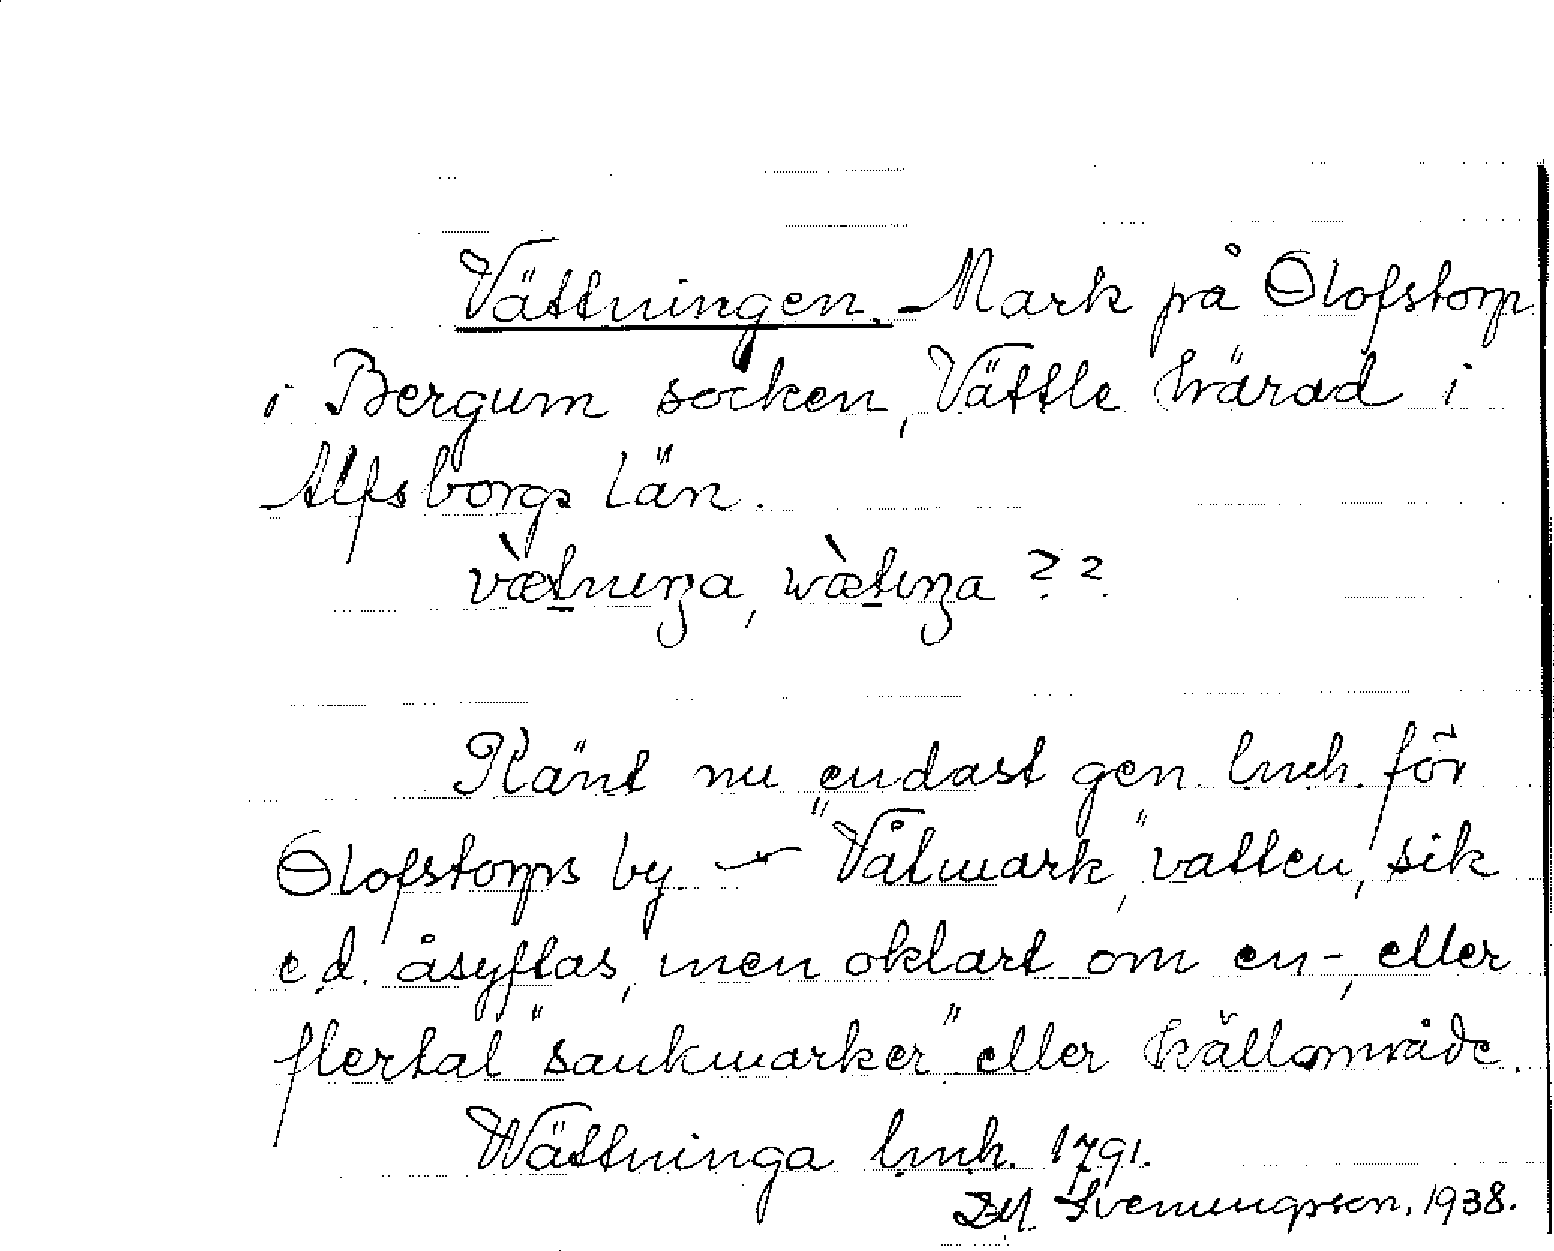 Vättningen. Mark på Olofstorp
i Bergum socken, Vättle härad i
Älfsborgs län.
væ̀tnıŋa, wæ̀tıŋa ??
Känt nu endast gen. lmh. för
Olofstorps by — "Våtmark", vatten, sik
e.d. åsyftas, men oklart om en-, eller
flertal "sankmarker" eller källområde.
Wättninga lmh. 1791.
Svenungsson. 1938.